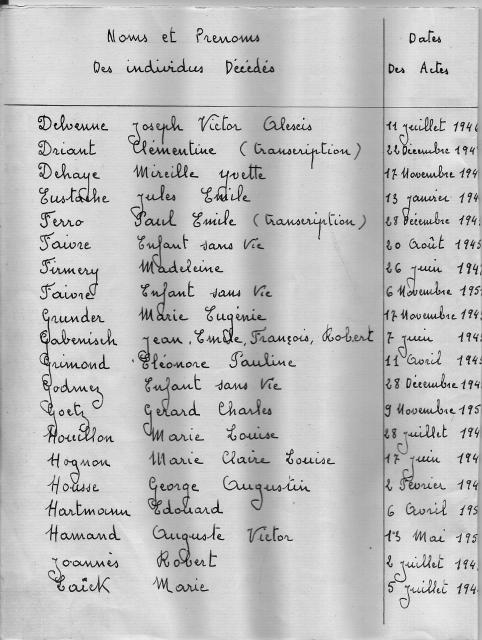 Noms et Prenoms Dates
Des individus Décédés Des Actes
Delvenne Joseph Victor Alexis 11 Juillet 194
Driant Clémentine (transcription) 22 Décembre 194
Dehaye Mireille Yvette 17 Novembre 194
Eustache Jules Emile 13 janvier 194
Ferro Paul Emile (transcription) 28 Décembre 194
Faivre Enfant sans Vie 20 Août 1945
Firmery Madeleine 26 juin 194
Faivre Enfant sans Vie 6 Novembre 195
Grunder Marie Eugénie 17 Novembre 194
Gabenisch Jean, Emile, François, Robert 7 juin 194
Grimond Eléonore Pauline 11 Avril 194
Godmez Enfant sans Vie 28 Décembre 194
Goetz Gérard Charles 9 Novembre 195
Houillon Marie Louise 28 Juillet 194
Hognon Marie Claire Louise 17 juin 194
Housse George Augustin 2 Février 194
Hartmann Edouard 6 Avril 195
Hamand Auguste Victor 13 Mai 195
Joannès Robert 2 Juillet 194
Laïck Marie 5 Juillet 194